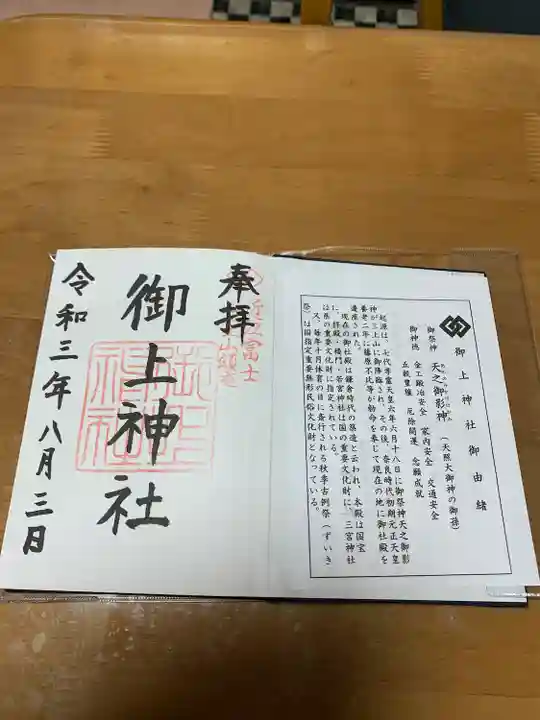 御上神社御由緒
御祭神 天之御影神(天照大御神の御孫)
あめの みかげの かみ
御神徳 金工鍛冶安全 家内安全 交通安全
五穀豊穣 厄除開運 念願成就
起源は、七代孝霊天皇六年六月十八日に御祭神天之御影
神が三上山に御降臨され、その後、奈良時代初期元正天皇
養老二年に藤原不比等が勅命を奉じて現在の地に御社殿を
造営された。
現在の御社殿は鎌倉時代の祭造と云われ、本殿は国宝
に、拝殿・楼門・若宮神社は国の重要文化財に、三宮神社
は県の重要文化財に指定されている。
又、毎年十月体育の日に斎行される秋季古例祭(ずいき
祭)は国指定重要無形民俗文化財となっている。
近江富士
奉拝
御上神社
御上
神社
令和三年八月三日